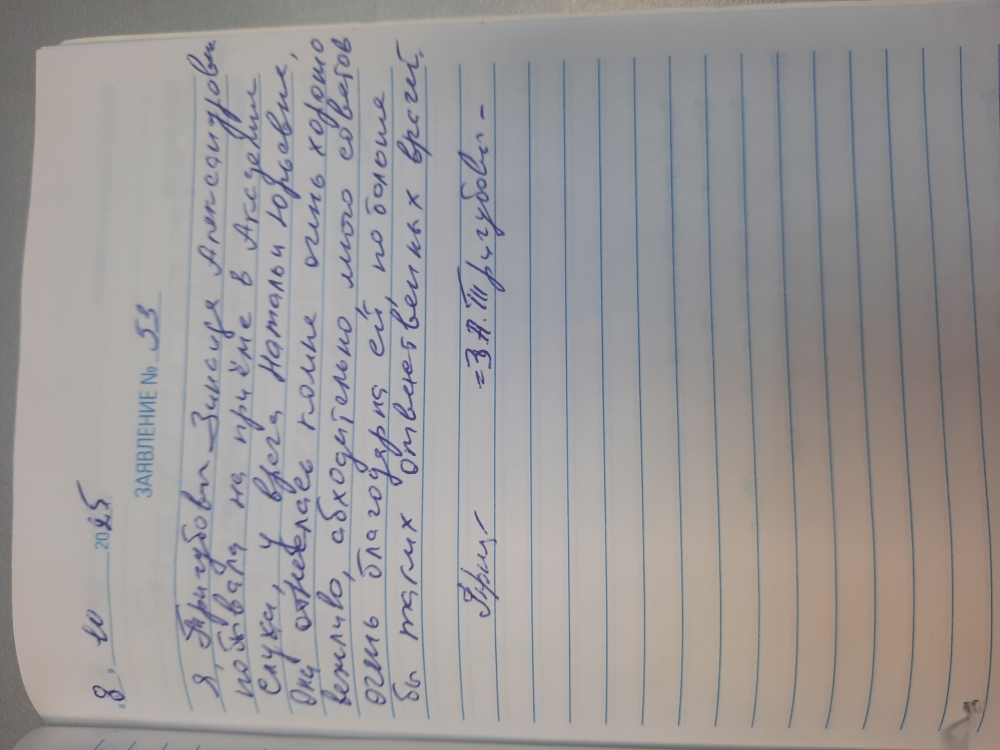 "8" 10 2025
ЗАЯВЛЕНИЕ № 53
Я, Тригубович Зинаида Александровн
побывала на приёме в Академии
слуха, у врача Натальи Юрьевне,
Она отнеслась комне очень хорошо
вежливо, абходительно много советов
очень благодарна ей, по больше
бы таких ответственных врачей.
=З.А. Тригубович-